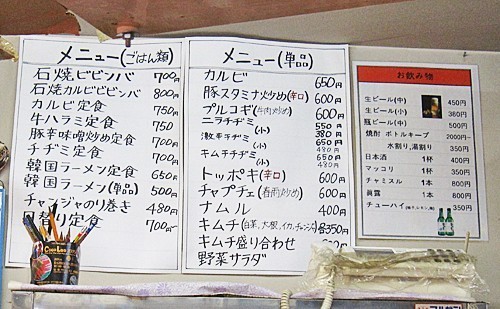 メニュー(ごはん類)
石焼ビビンバ 700円
石焼カルビビビンバ 800円
カルビ定食 750円
牛ハラミ定食 750
豚辛味噌炒め定食 700
チヂミ定食 700
韓国ラーメン定食 650円
韓国ラーメン(単品) 500円
チャンジャのり巻き 480円
日替り定食 700円
メニュー(単品)
カルビ 650円
豚スタミナ炒め(辛口) 600円
プルコギ(牛肉炒め) 600円
ニラチヂミ 550円
(小) 380円
激辛チヂミ 650円
(小) 480円
キムチチヂミ 650
(小) 480円
トッポキ(辛口) 600円
チャプチェ(春雨炒め) 600円
ナムル 400円
キムチ(白菜、大根、イカ、チャンジャ) 各350円
キムチ盛り合わせ 800円
野菜サラダ
お飲み物
生ビール(中) 450円
生ビール(小) 380円
瓶ビール(中) 500円
焼酎 ボトルキープ 2000円~
水割り,湯割り 350円
日本酒 1杯 400円
マッコリ 1杯 350円
チャミスル 1本 800円
眞露 1本 800円
チューハイ 350円